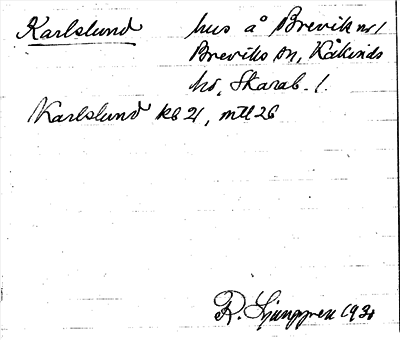 Karlslund hus å Brevik nr 1
Breviks sn, Kåkinds
hd, Skarab. l.
Karlslund kb 21, mtl 26
R. Ljunggren 1930